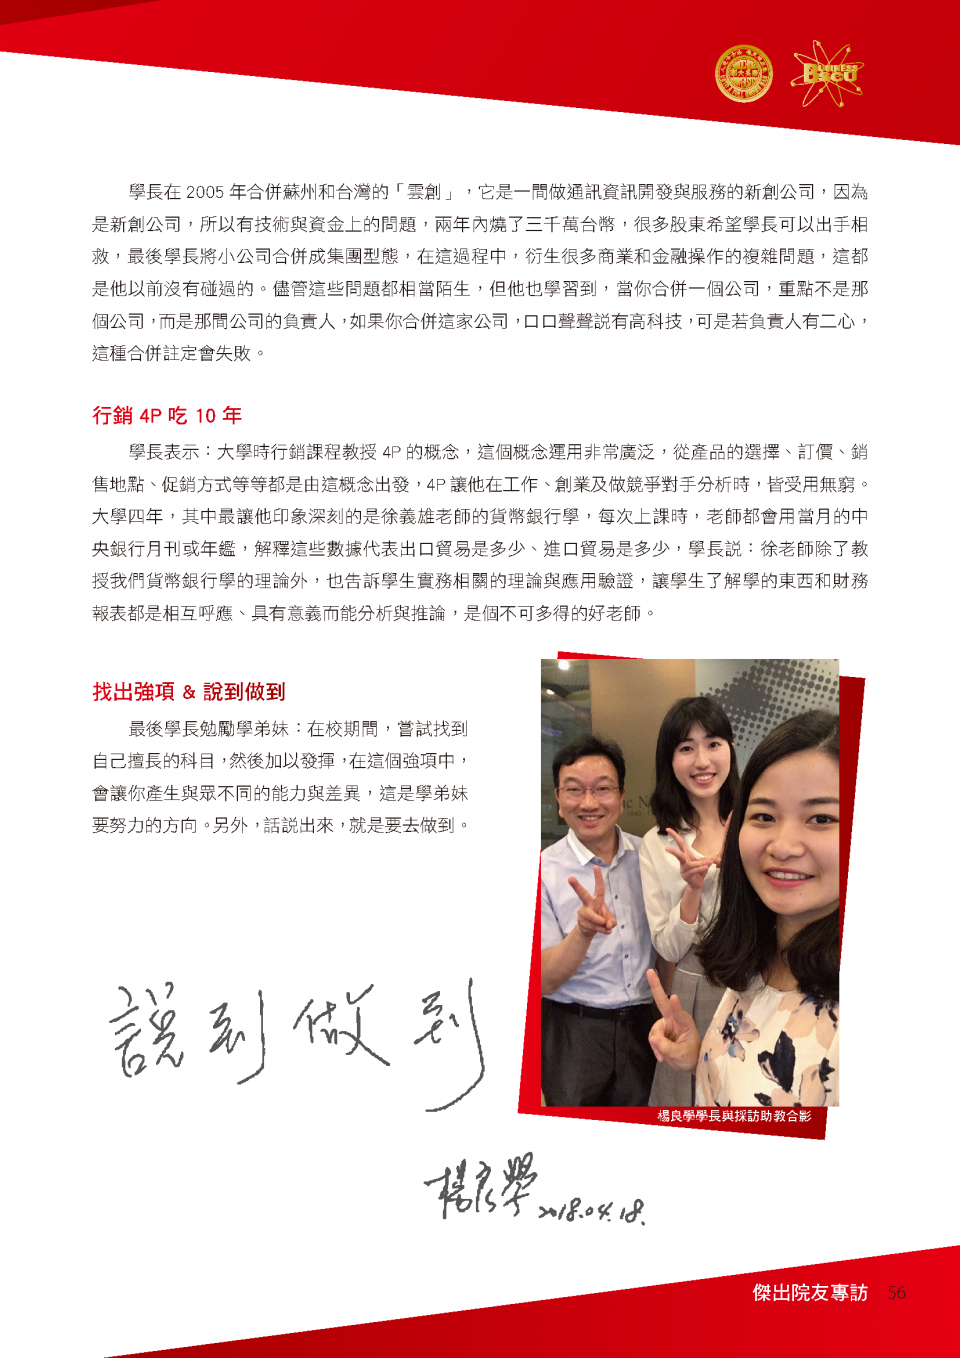 BUSINESS
SCU
學長在 2005 年合併蘇州和台灣的「雲創」，它是一間做通訊資訊開發與服務的新創公司，因為
是新創公司，所以有技術與資金上的問題，兩年內燒了三千萬台幣，很多股東希望學長可以出手相
救，最後學長將小公司合併成集團型態，在這過程中，衍生很多商業和金融操作的複雜問題，這都
是他以前沒有碰過的。儘管這些問題都相當陌生，但他也學習到，當你合併一個公司，重點不是那
個公司，而是那間公司的負責人，如果你合併這家公司，口口聲聲說有高科技，可是若負責人有二心，
這種合併註定會失敗。
行銷 4P 吃 10 年
學長表示：大學時行銷課程教授 4P 的概念，這個概念運用非常廣泛，從產品的選擇、訂價、銷
售地點、促銷方式等等都是由這概念出發，4P 讓他在工作、創業及做競爭對手分析時，皆受用無窮。
大學四年，其中最讓他印象深刻的是徐義雄老師的貨幣銀行學，每次上課時，老師都會用當月的中
央銀行月刊或年鑑，解釋這些數據代表出口貿易是多少、進口貿易是多少，學長說：徐老師除了教
授我們貨幣銀行學的理論外，也告訴學生實務相關的理論與應用驗證，讓學生了解學的東西和財務
報表都是相互呼應、具有意義而能分析與推論，是個不可多得的好老師。
找出強項 & 說到做到
最後學長勉勵學弟妹：在校期間，嘗試找到
自己擅長的科目，然後加以發揮，在這個強項中，
會讓你產生與眾不同的能力與差異，這是學弟妹
要努力的方向。另外，話說出來，就是要去做到。
說到做到
楊良學學長與採訪助教合影
楊良學 2018.04.18.
傑出院友專訪 56